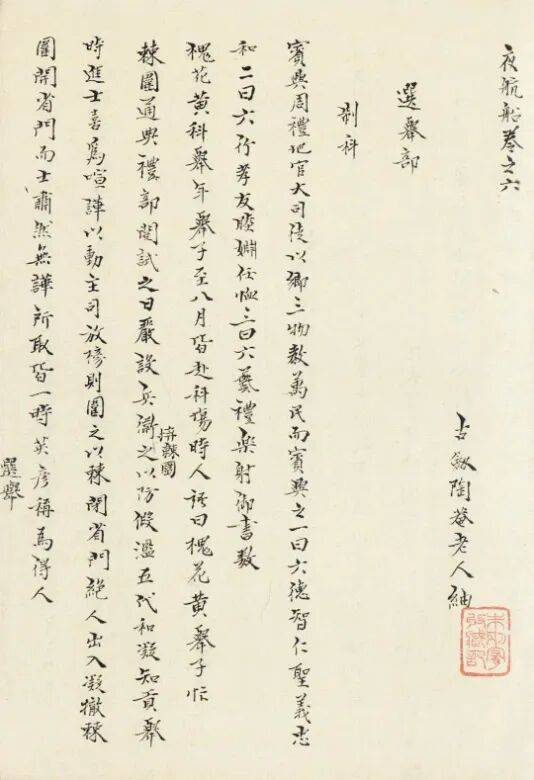 夜航船卷之六
古劔陶菴老人紬
選舉部
制科
賓興周禮地官大司徒以鄉三物教萬民而賓興之一曰六德智仁聖義忠
和二曰六行孝友睦婣任恤三曰六藝禮樂射御書數
槐花黃科舉年舉子至八月皆赴科場時人語曰槐花黃舉子忙
棘圍通典禮部閱試之日嚴設兵衛之以防假濫五代和凝知貢舉
栫棘圍
時進士喜爲喧譁以動主司放榜則圍之以棘閉省門絕人出入凝撤棘
圍開省門而士肅然無譁所取皆一時英彥稱爲得人
選舉